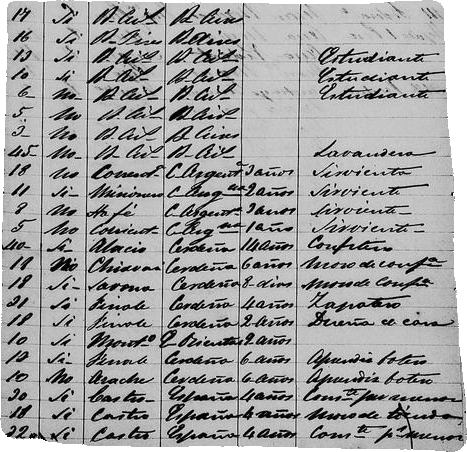 17 Si B. Ais B. Aires
16 Si B. Aires B. Aires
13 Si B. Ais B. Ais Estudiante
10 Si B. Ais B. Ais Estudiante
6 No B. Ais B. Ais Estudiante
5 No B. Ais B. Ais
3 No B. Ais B. Aires
45 No B. Ais B. Ais Lavandera
18 no C. Argent 3 años Sirvienta
11 Si Misiones C. Arg na 2 años Sirvienta
8 No Sta fé C. Argent 3 años Sirvienta
5 No C. Arg na 1 año Sirvienta
40 Si Alacio Cerdeña 14 años Confitero
19 No Chiavari Cerdeña 6 años Moso de conf a
18 Si Savona Cerdeña 8 dias Moso de Conf a
21 Si Finale Cerdeña 4 años Zapatero
18 Si Finale Cerdeña 2 años Dueña de casa
10 Si Montº Oriental 2 años
19 Si Finale Cerdeña 6 años Aprendis botero
10 No Cerdeña 6 años Aprendis botero
30 Si Castro España 4 años Cons te por menor
18 Si Castro España 4 años Moso de tienda
22 Si Castro España 4 años Cons te pr menor